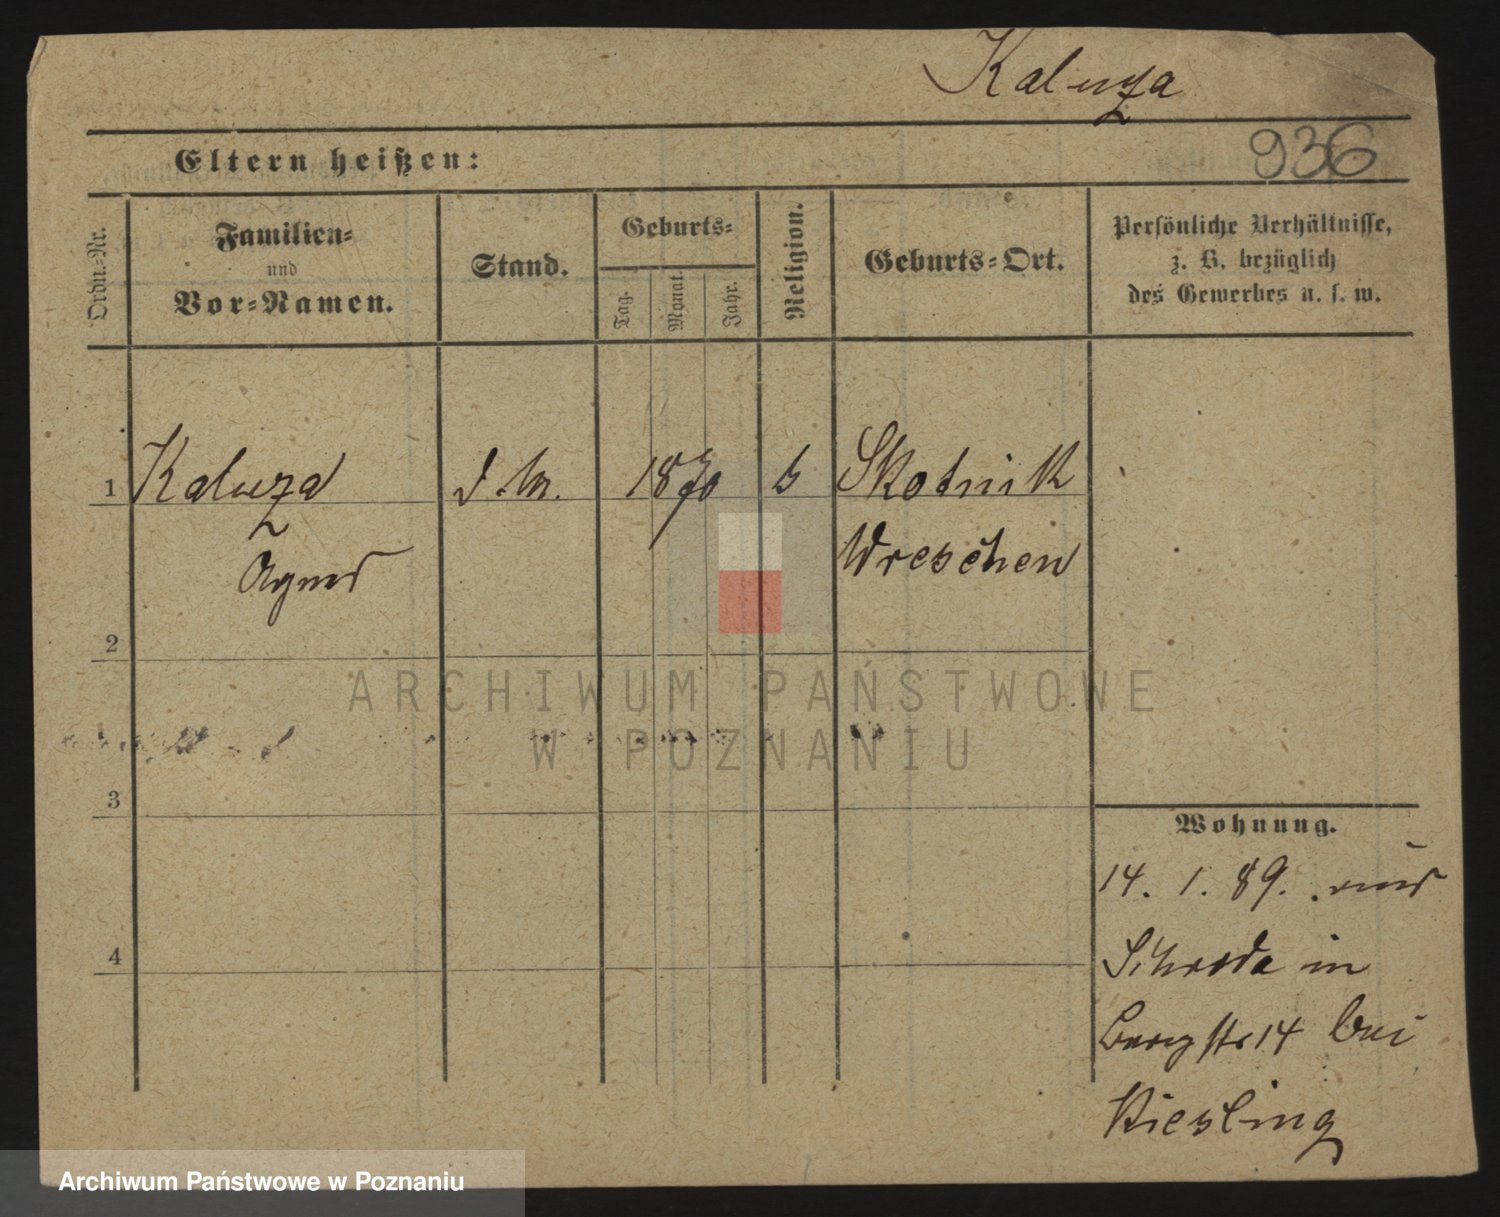 Kaluza
936
Eltern heißen:
Ordn.-Nr.
Familien-
und
Vor-Namen.
Stand.
Geburts-
Tag.
Monat.
Jahr.
Religion.
Geburts-Ort.
Persönliche Verhältnisse,
z. B. bezüglich
des Gewerbes u. s. w.
1 Kaluza 1870 Skotnik
Agnes Wreschen
2
3
4
Wohnung.
14. 1. 89. aus
Schroda in
Bergstr 14 bei
Kiesling
ARCHIWUM PAŃSTWOWE
W POZNANIU
Archiwum Państwowe w Poznaniu